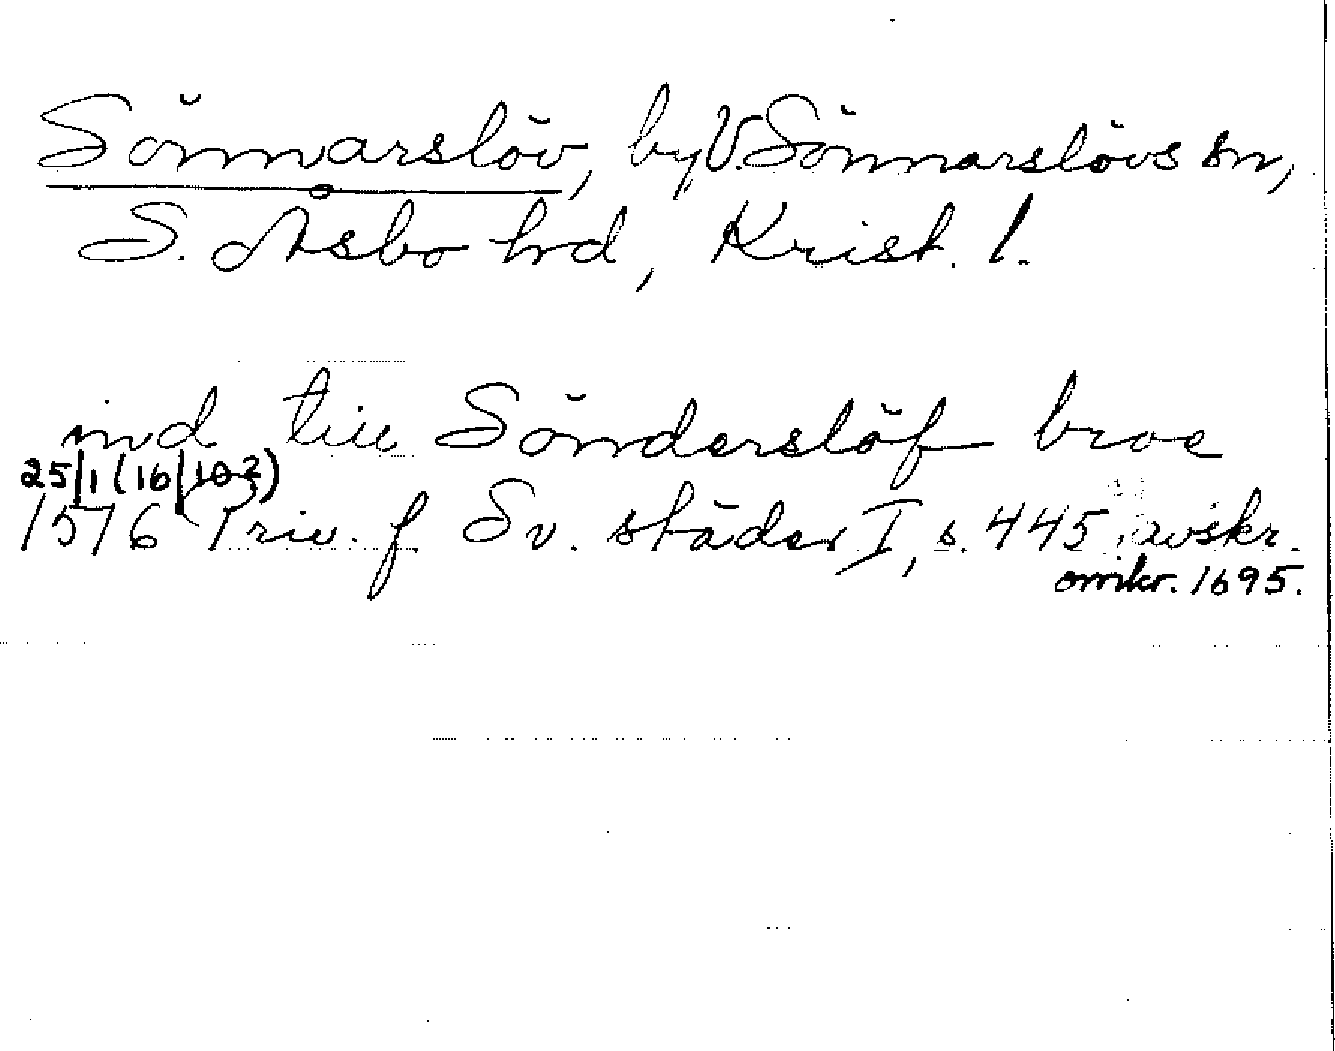 Sönnarslöv, by V. Sönnarslövs sn,
S. Åsbo hrd, Krist. l.
ind till Sönderslöf broe
25/1 (16/10 ?)
1576 Priv. f Sv. städer I, s. 445, avskr.
omkr. 1695.